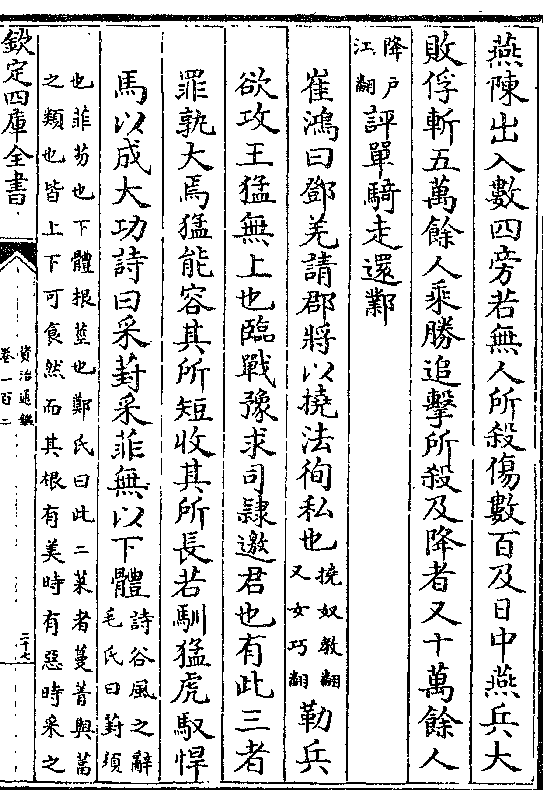 燕陳出入數四旁若無人所殺傷數百及日中燕兵大
敗俘斬五萬餘人乘勝追擊所殺及降者又十萬餘人
降戸
江翻
評單騎走還鄴
崔鴻曰鄧羌請郡將以撓法徇私也
撓奴教翻
又女巧翻
勒兵
欲攻王猛無上也臨戰豫求司隸邀君也有此三者
罪孰大焉猛能容其所短收其所長若馴猛虎馭悍
馬以成大功詩曰采葑采菲無以下體
詩谷風之辭
毛氏曰葑須
也菲芴也下體根莖也鄭氏曰此二菜者蔓菁與葍
之類也皆上下可食然而其根有美時有惡時采之
欽定四庫全書
資治通鑑
卷一百二
三十七